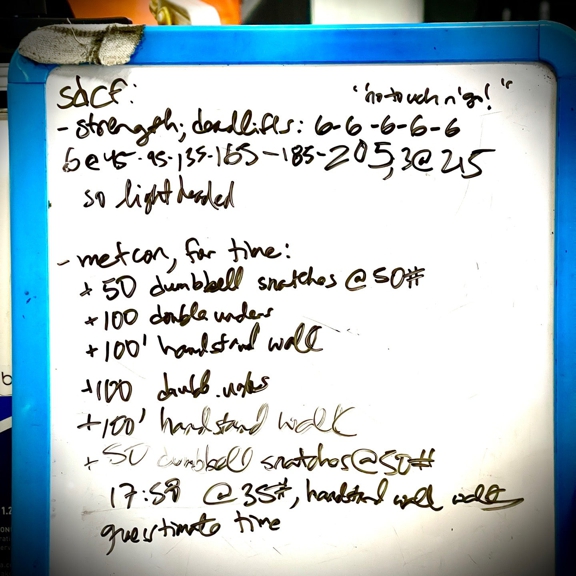 sdcf: "no touch n' go!"
- strength; deadlifts: 6-6-6-6-6
6@45-95-135-165-185-205, 3@215
so lightheaded
- metcon, for time:
+ 50 dumbbell snatches @50#
+ 100 double unders
+ 100' handstand walk
+ 100 doubl. unders
+ 100' handstand walk
+ 50 dumbbell snatches @50#
17:58 @35#, handstand wall walks
guesstimate time